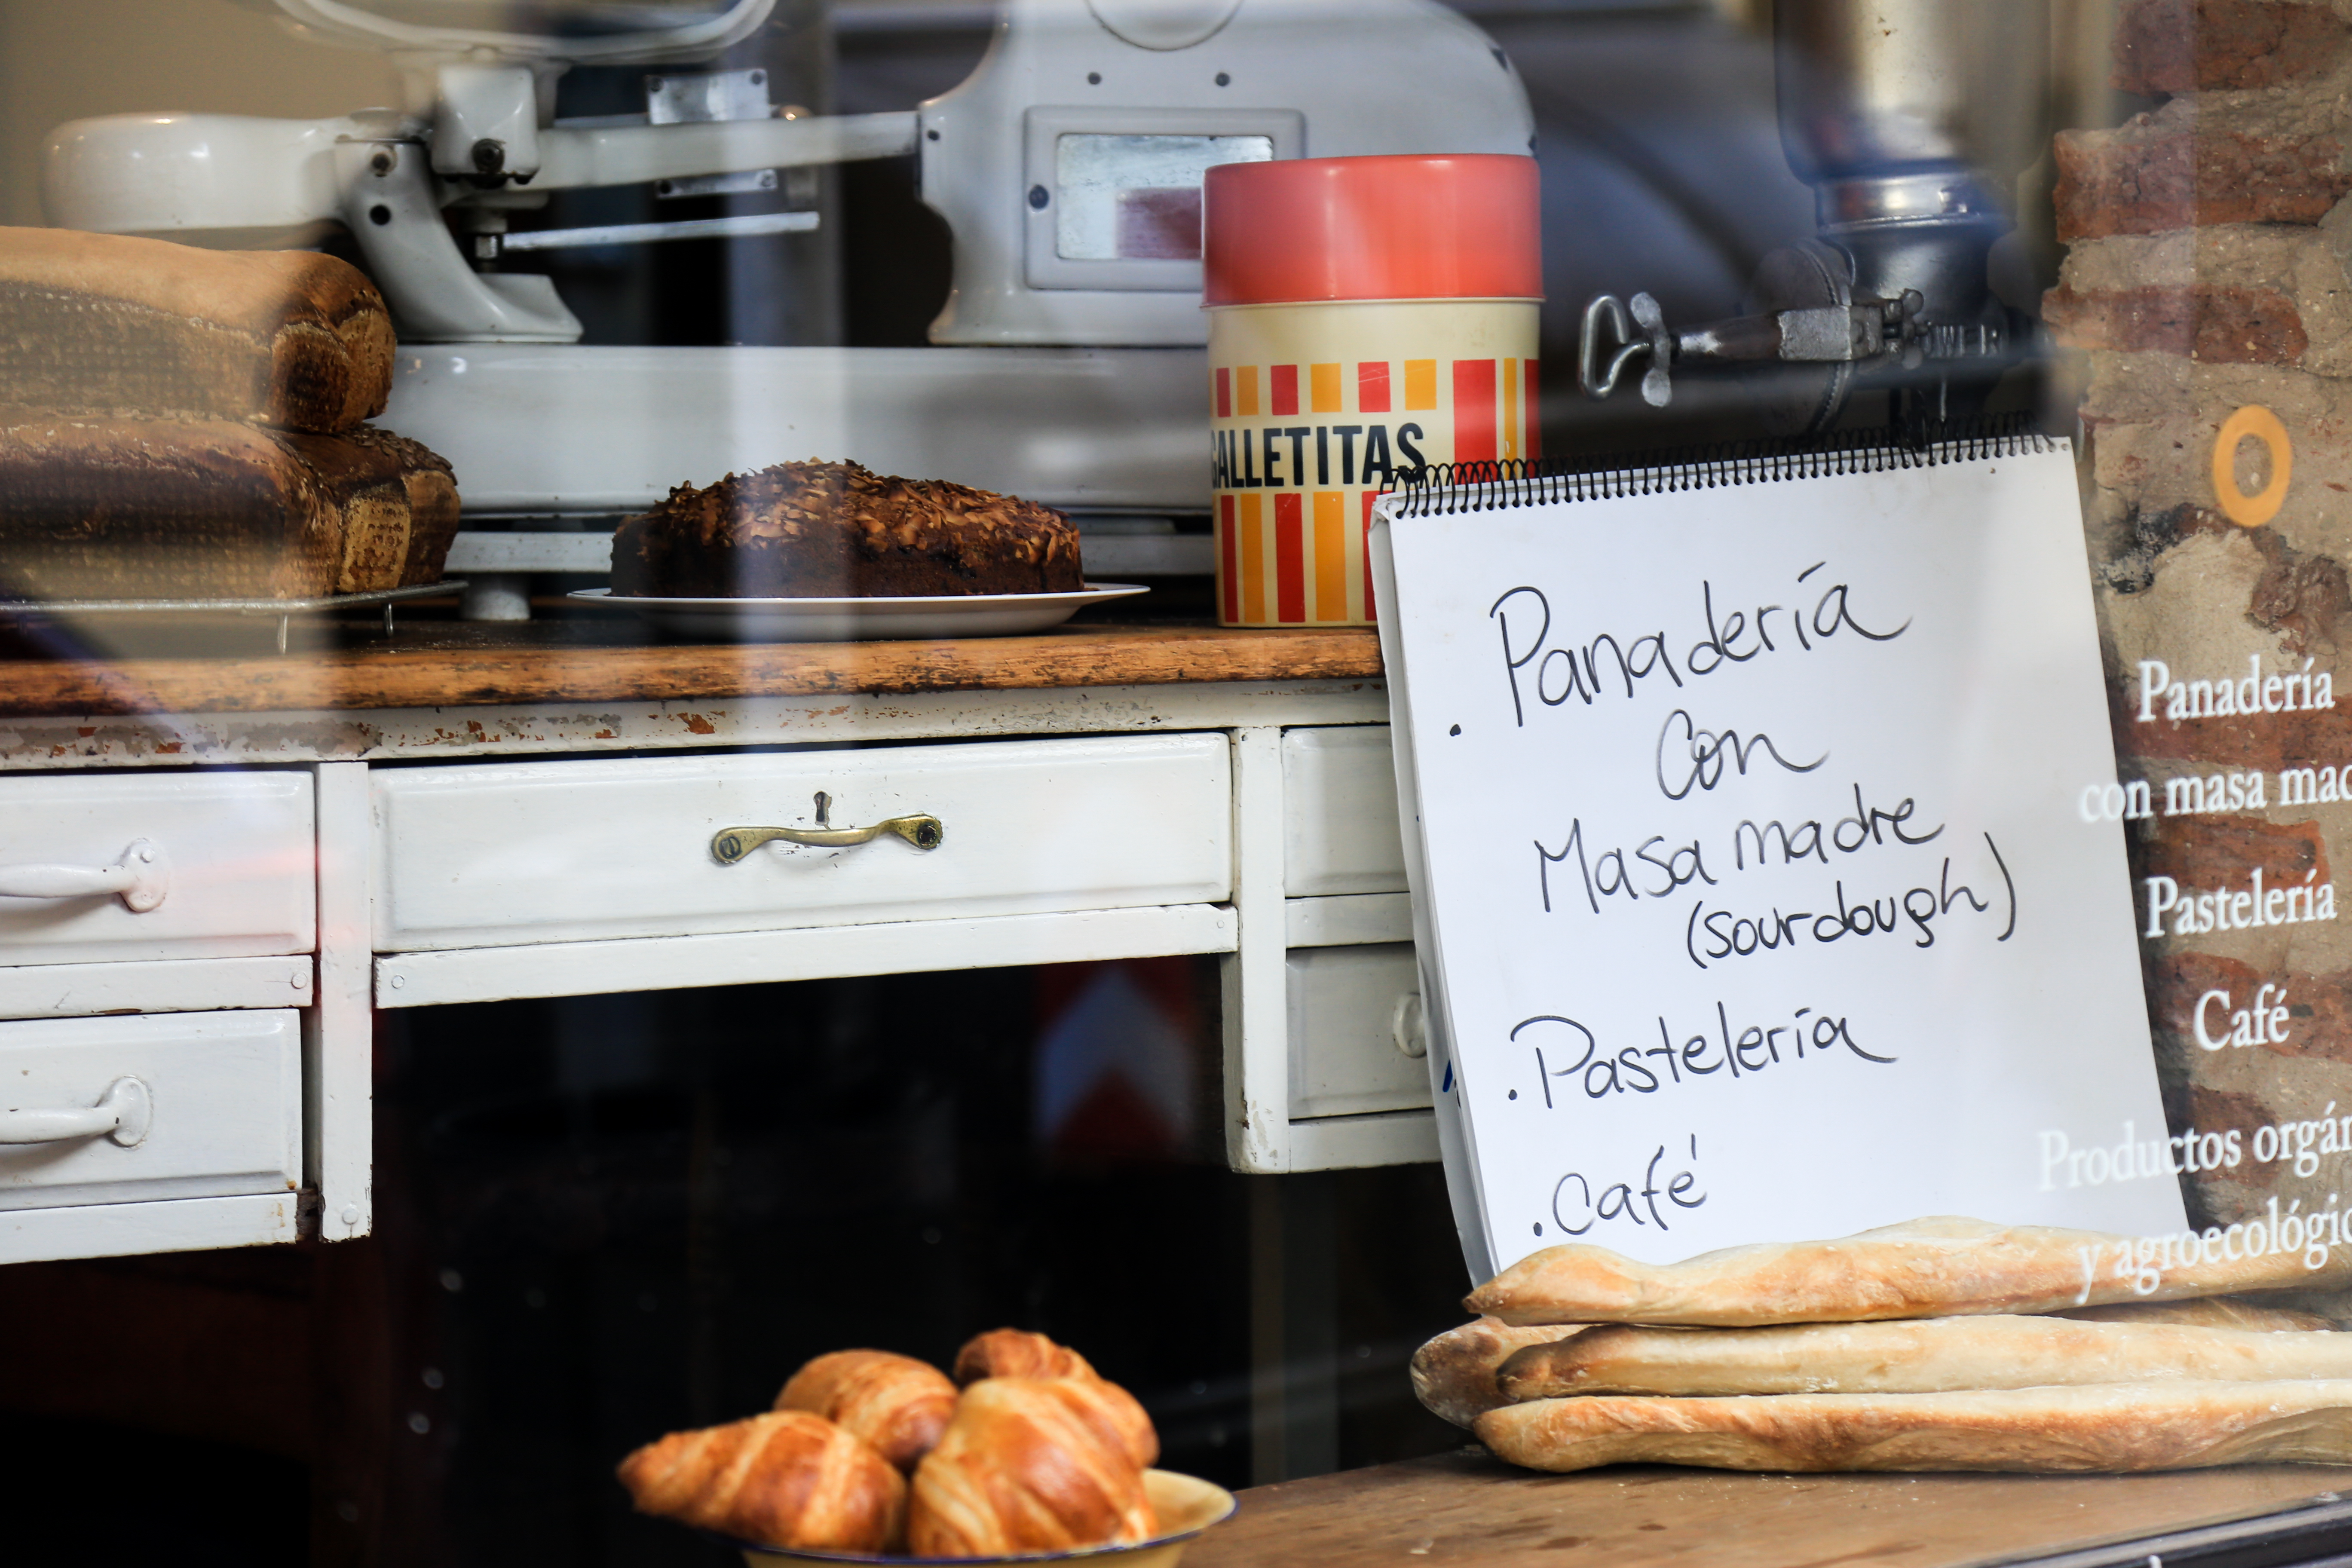 GALLETITAS
. Panadería
con
Masa madre
(sourdough)
. Pastelería
. Café
Panadería
con masa mad
Pastelería
Café
Productos orgán
y agroecológic